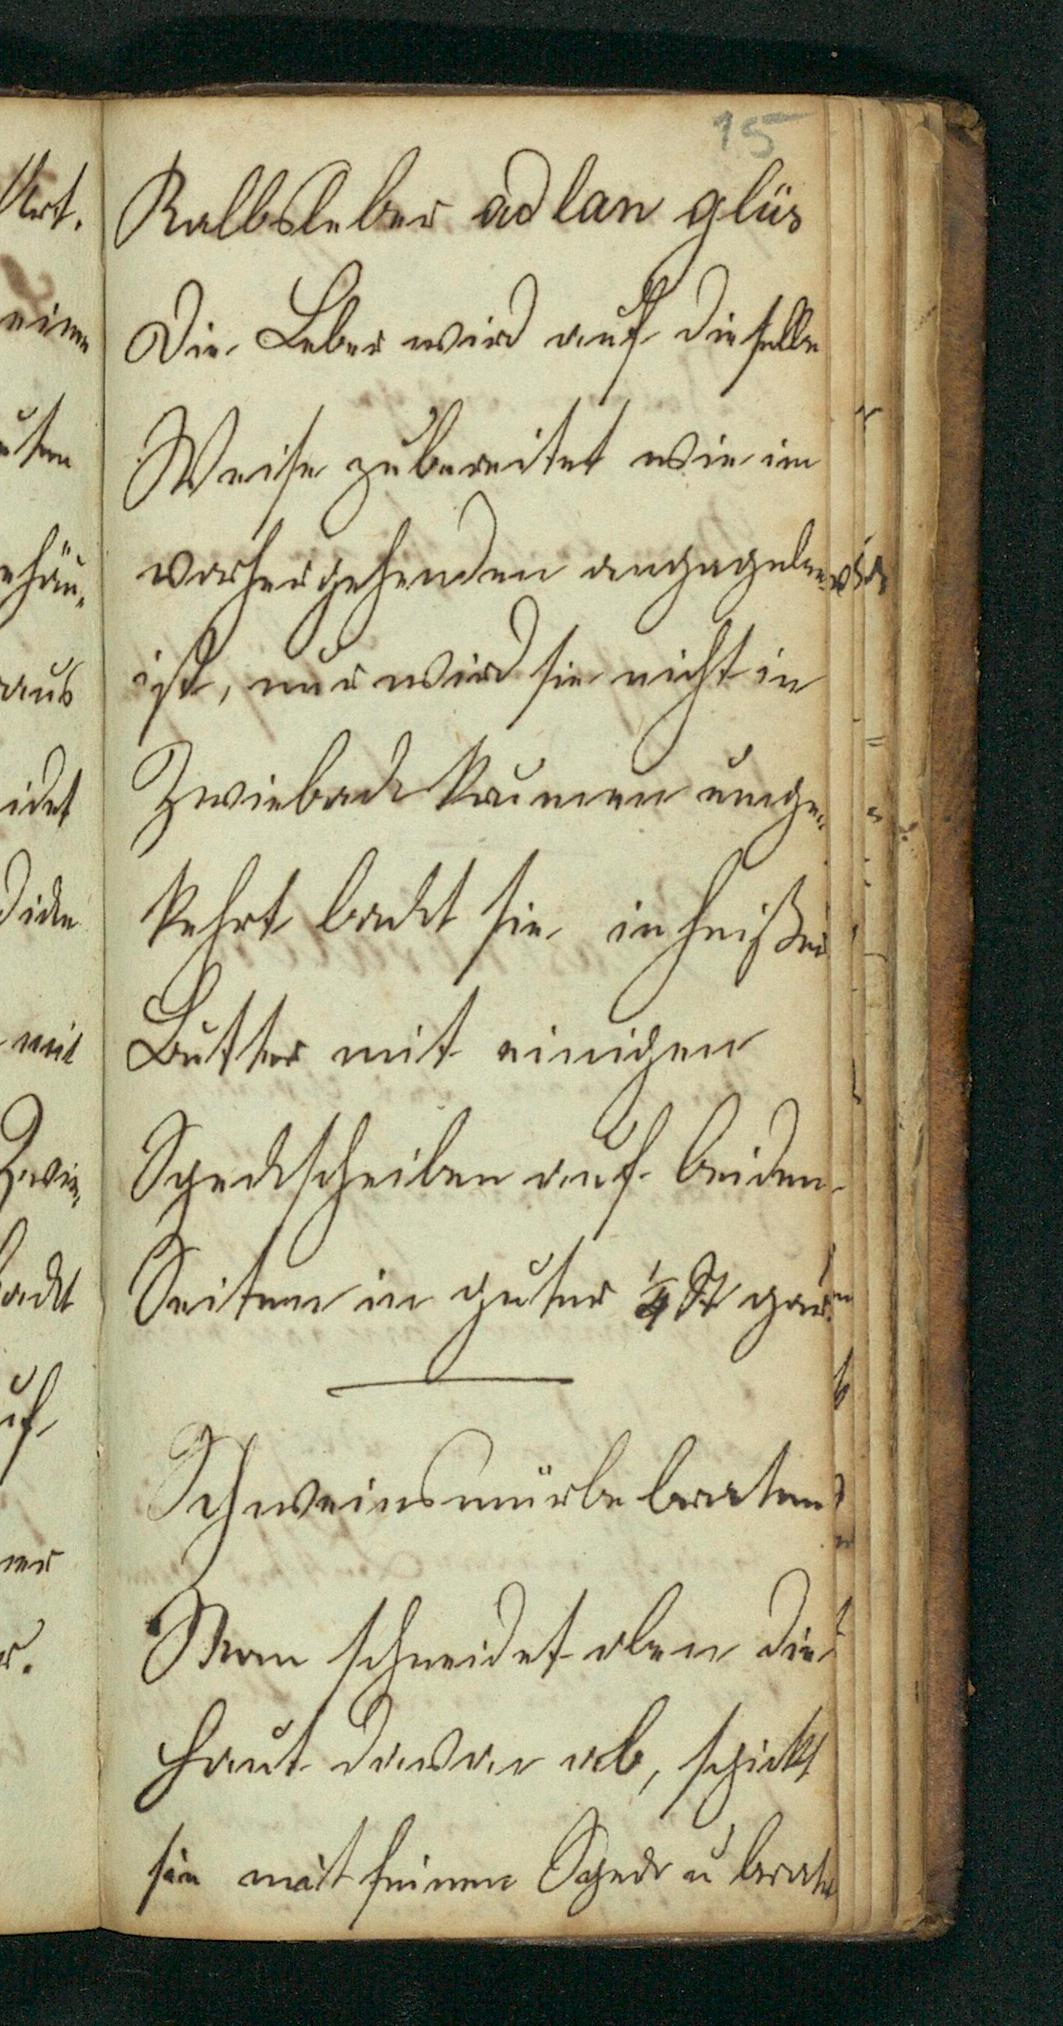 15
Kalbsleber ad lan glüs
Die Leber wird auf dieselbe
Weise zubereitet wie im
vorhergehenden angegeben
ist, nur wird sie nicht in
Zwieback Krumen umge„
kehrt backt sie in heißer
Butter mit einigen
Speckscheiben auf beiden
Seiten in guter 1/4 St gar.
Schweinsmürbebraten
Man schneidet oben die
Haut davon ab, spickt
sie mit feinem Speck u brate